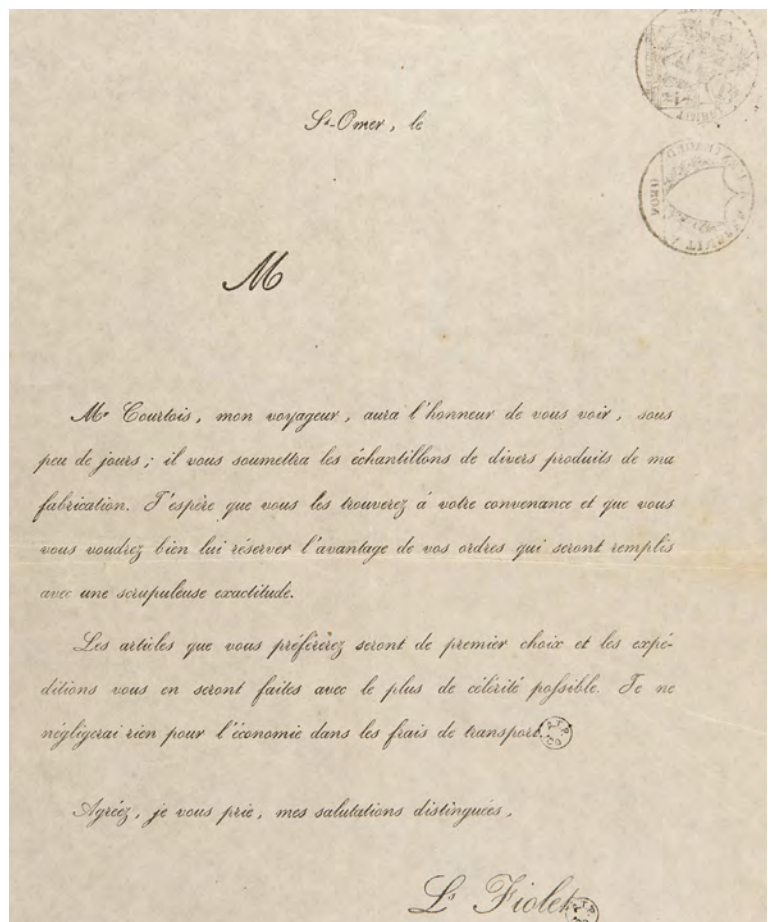 St-Omer, le
M
Mr Courtois, mon voyageur, aura l'honneur de vous voir, sous
peu de jours; il vous soumettra les échantillons de divers produits de ma
fabrication. J'espère que vous les trouverez à votre convenance et que vous
vous voudrez bien lui réserver l'avantage de vos ordres qui seront remplis
avec une scrupuleuse exactitude.
Les articles que vous préférerez seront de premier choix et les expé-
ditions vous en seront faites avec le plus de célérité possible. Je ne
négligerai rien pour l'économie dans les frais de transport.
Agréez, je vous prie, mes salutations distinguées,
Ls Fiolet